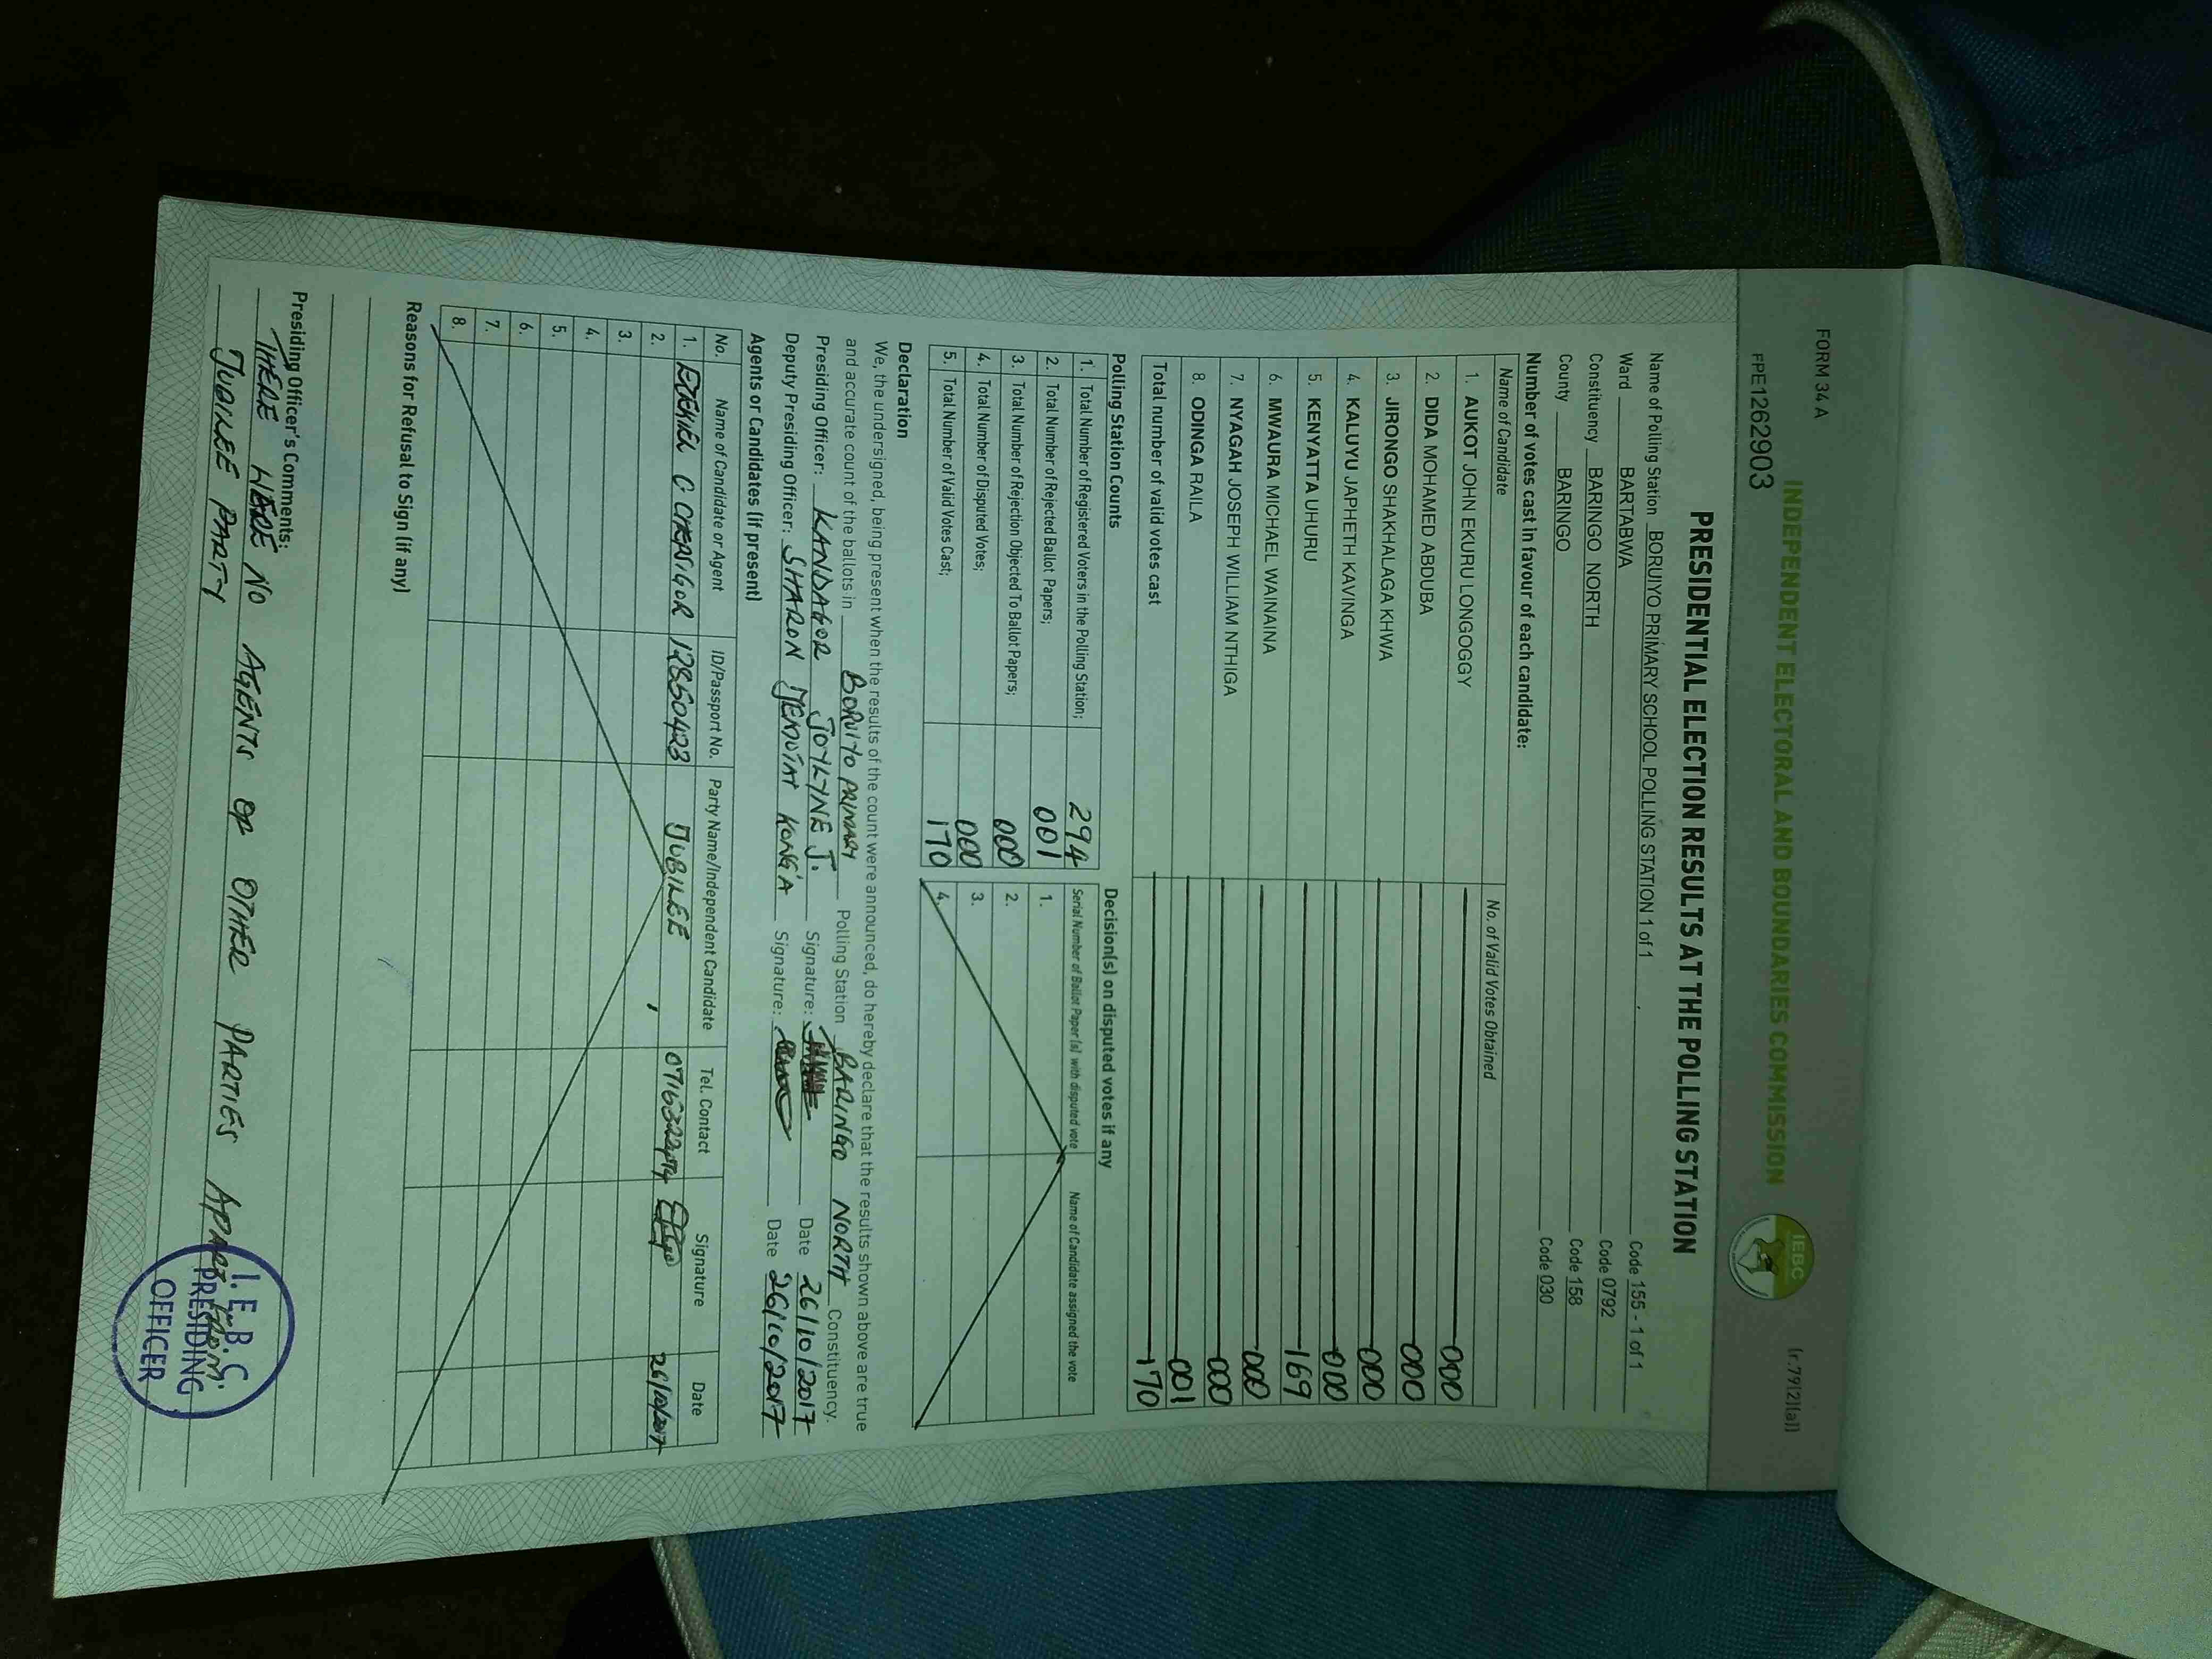 FORM 34 A
(r.79(2)(a))
INDEPENDENT ELECTORAL AND BOUNDARIES COMMISSION
IEBC
FPE1262903
PRESIDENTIAL ELECTION RESULTS AT THE POLLING STATION
Name of Polling Station BORUIYO PRIMARY SCHOOL POLLING STATION 1 of 1 Code 155 - 1 of 1
Ward BARTABWA Code 0792
Constituency BARINGO NORTH Code 158
County BARINGO Code 030
Number of votes cast in favour of each candidate:
Name of Candidate No. of Valid Votes Obtained
1. AUKOT JOHN EKURU LONGOGGY 000
2. DIDA MOHAMED ABDUBA 000
3. JIRONGO SHAKHALAGA KHWA 000
4. KALUYU JAPHETH KAVINGA 000
5. KENYATTA UHURU 169
6. MWAURA MICHAEL WAINAINA 000
7. NYAGAH JOSEPH WILLIAM NTHIGA 000
8. ODINGA RAILA 001
Total number of valid votes cast 170
Polling Station Counts Decision(s) on disputed votes if any
1. Total Number of Registered Voters in the Polling Station; 294
2. Total Number of Rejected Ballot Papers; 001
3. Total Number of Rejection Objected To Ballot Papers; 000
4. Total Number of Disputed Votes; 000
5. Total Number of Valid Votes Cast; 170
Serial Number of Ballot Paper (s) with disputed vote Name of Candidate assigned the vote
1.
2.
3.
4.
Declaration
We, the undersigned, being present when the results of the count were announced, do hereby declare that the results shown above are true
and accurate count of the ballots in BORUIYO PRIMARY Polling Station BARINGO NORTH Constituency.
Presiding Officer: KANDAGOR JOYLYNE J. Signature: Date 26/10/2017
Deputy Presiding Officer: SHARON KONG'A Signature: Date 26/10/2017
Agents or Candidates (if present)
No. Name of Candidate or Agent ID/Passport No. Party Name/Independent Candidate Tel. Contact Signature Date
1. C 12850423 JUBILEE 26/10/2017
2.
3.
4.
5.
6.
7.
8.
Reasons for Refusal to Sign (if any)
Presiding Officer's Comments:
THERE WERE NO AGENTS OF OTHER PARTIES APART FROM
JUBILEE PARTY
I.E.B.C
PRESIDING
OFFICER